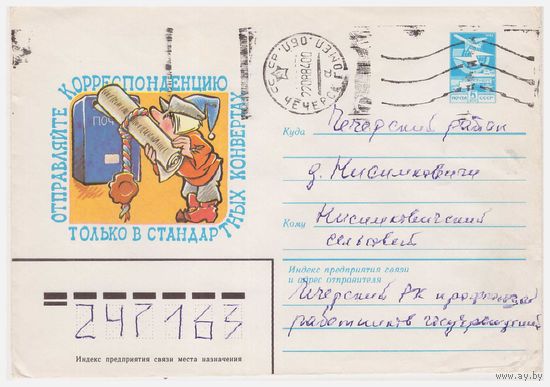 ОТПРАВЛЯЙТЕ КОРРЕСПОНДЕНЦИЮ
ТОЛЬКО В СТАНДАРТНЫХ КОНВЕРТАХ
ПОЧ
СССР
ЧЕЧЕРСК
ПОЧТА СССР
5
Куда Чечерский район
д. Нисимковичи
Кому Нисимковичский
сельсовет
Индекс предприятия связи
и адрес отправителя
Чечерский РК
работников госучреждений
247163
Индекс предприятия связи места назначения
www.ay.by